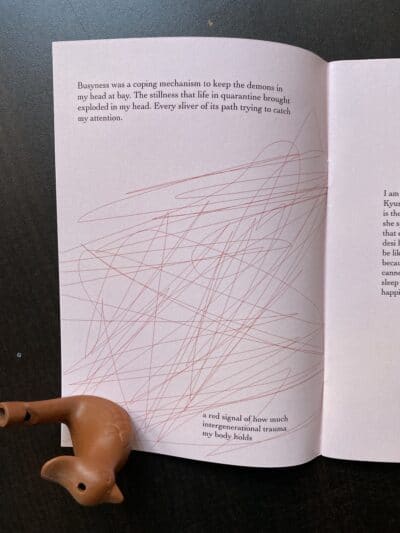 Busyness was a coping mechanism to keep the demons in
my head at bay. The stillness that life in quarantine brought
exploded in my head. Every sliver of its path trying to catch
my attention.
a red signal of how much
intergenerational trauma
my body holds
I am
is the
she s
that
desi
be lik
becau
sleep
happi